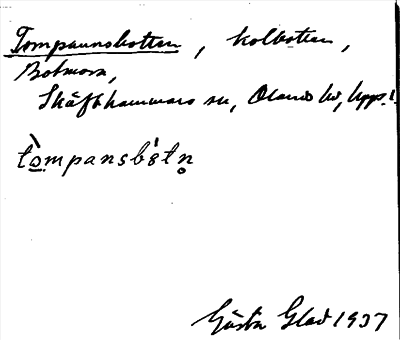 Tompannsbotten, kolbotten,
Botmora,
Skäfthammars sn, Olands hd, Uppl.
tòmpansbótn
Gösta Glad 1937